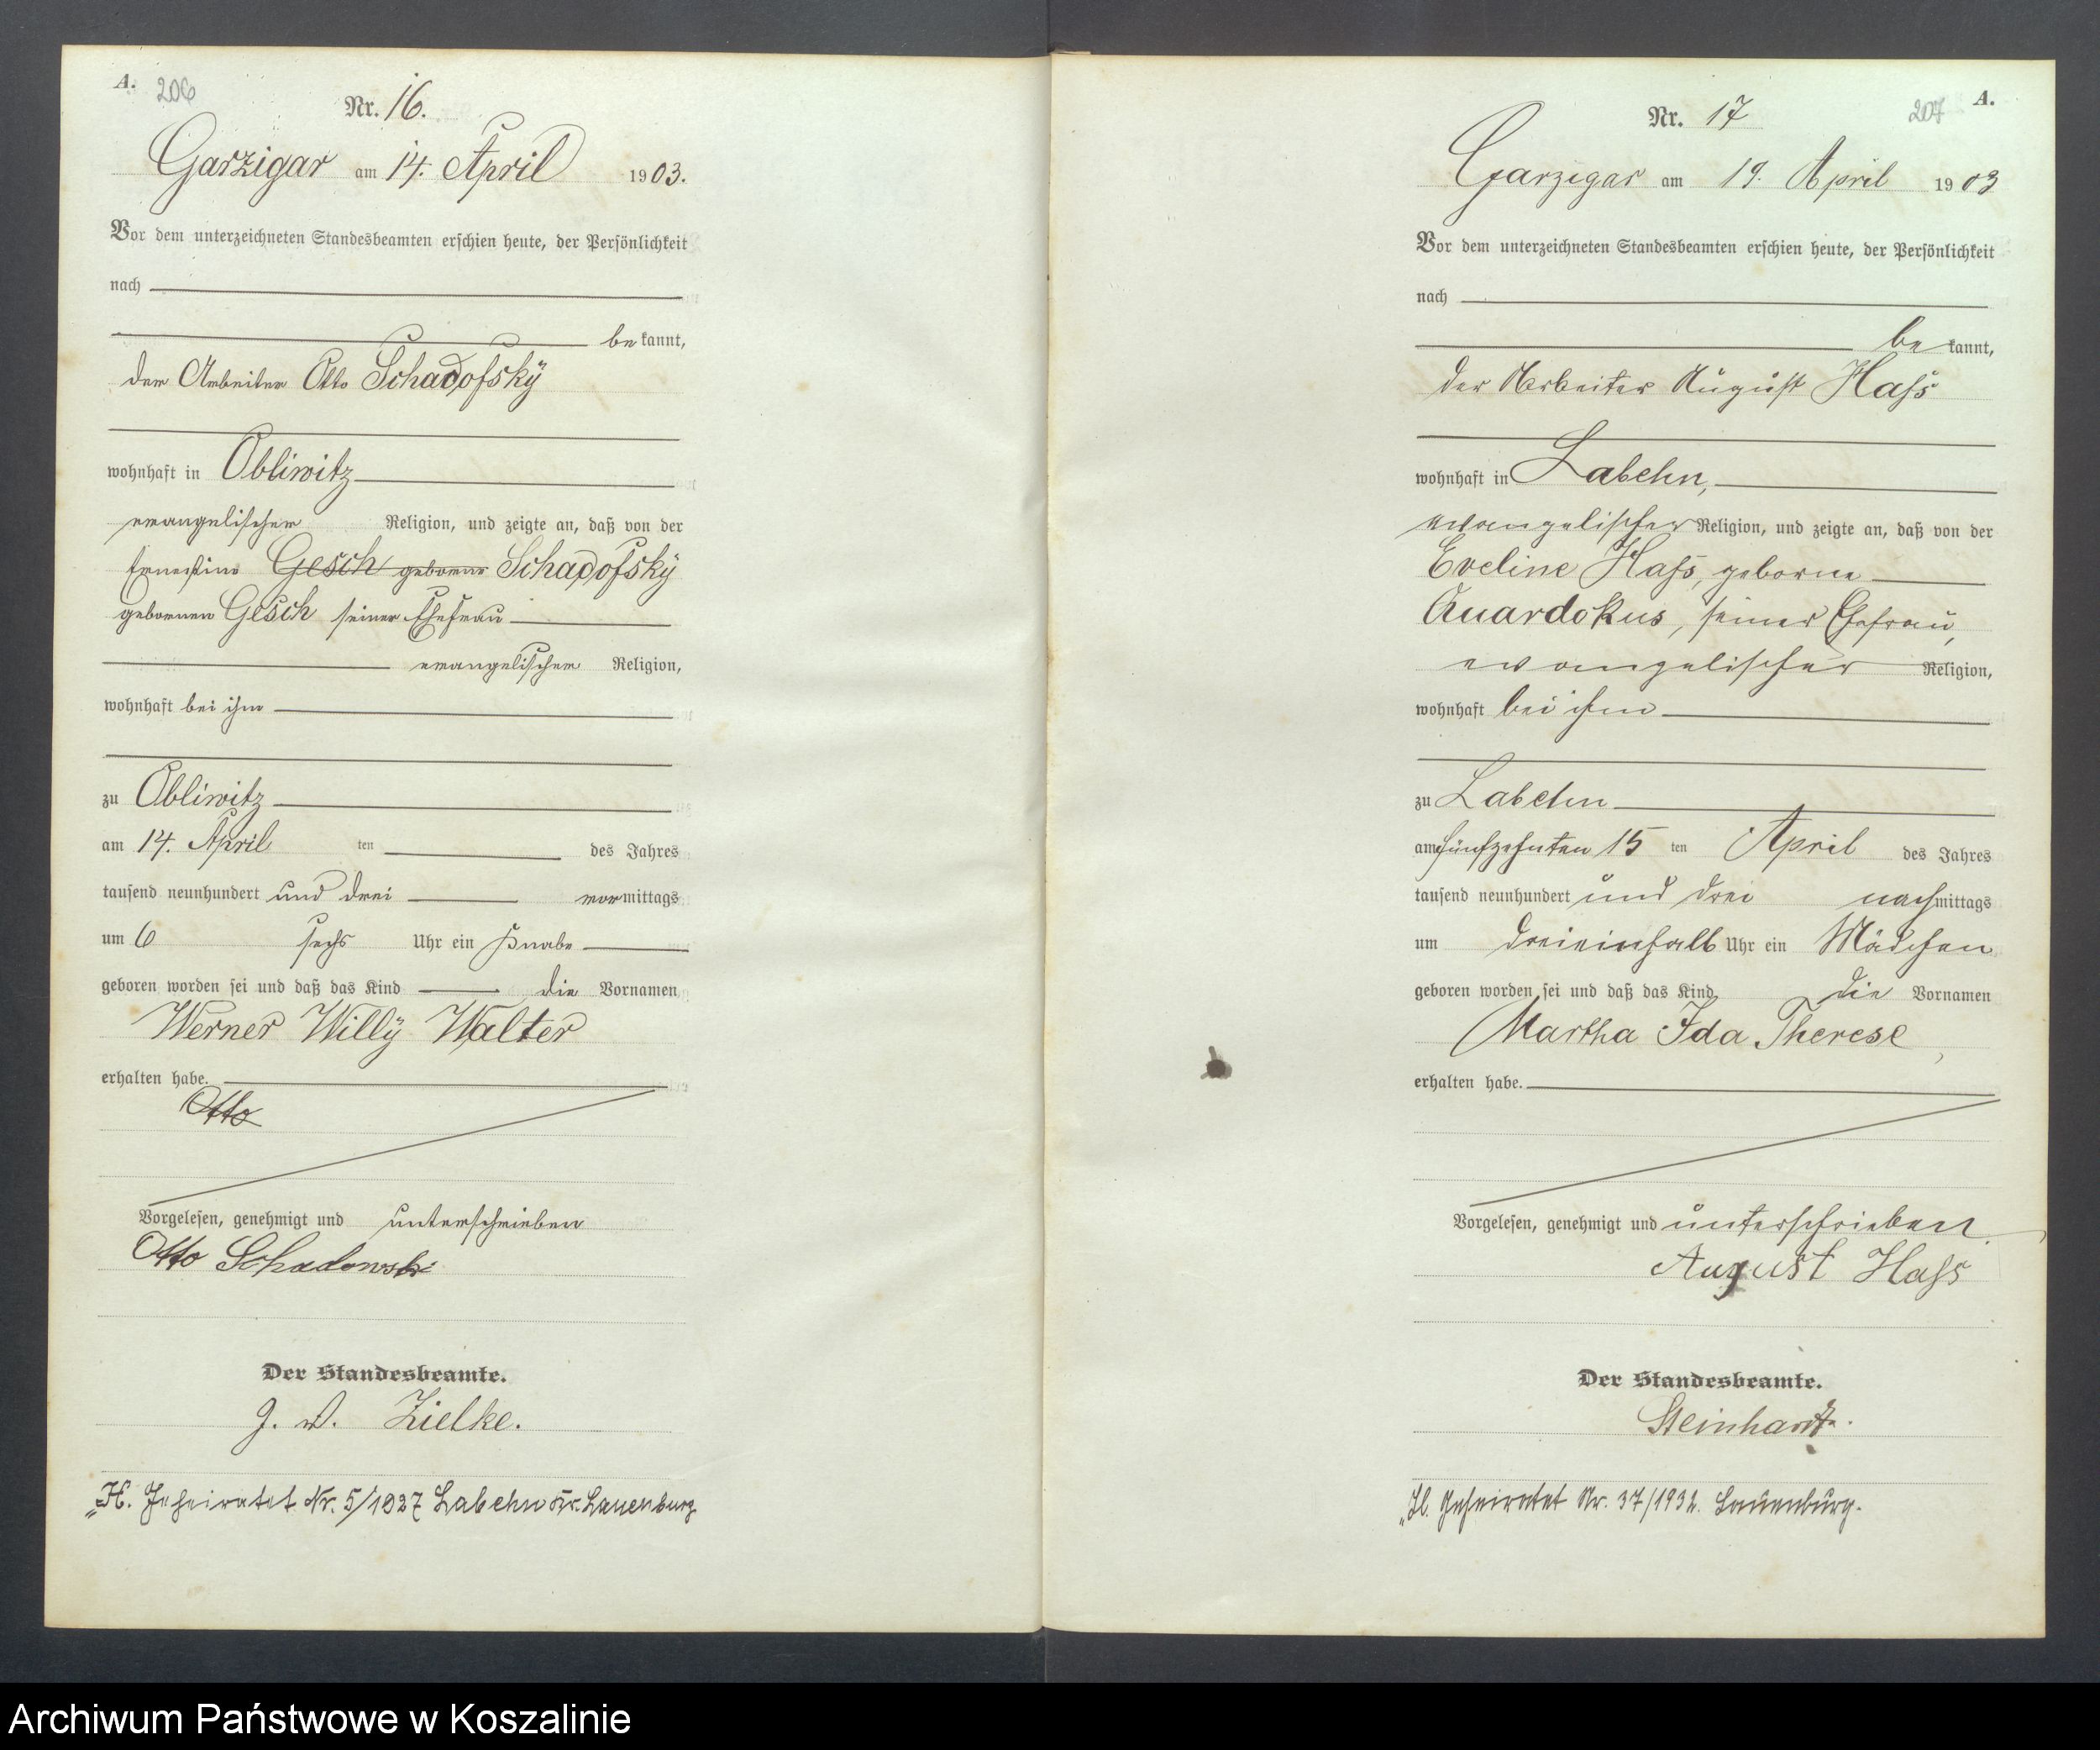 A. 206
Nr. 16.
Garzigar am 14. April 1903.
Vor dem unterzeichneten Standesbeamten erschien heute, der Persönlichkeit
nach
bekannt,
der Arbeiter Otto Schadofsky
wohnhaft in Obliwitz
evangelischer Religion, und zeigte an, daß von der
Ernestine Gesch geborene Schadofsky
geborenen Gesch seiner Ehefrau
evangelischer Religion,
wohnhaft bei ihm
zu Obliwitz
am 14. April ten des Jahres
tausend neunhundert und drei vormittags
um 6 sechs Uhr ein Knabe
geboren worden sei und daß das Kind die Vornamen
Werner Willy Walter
erhalten habe.
Otto
Vorgelesen, genehmigt und unterschrieben
Otto Schadowski
Der Standesbeamte.
J. V. Zielke.
„H. Geheiratet Nr. 5/1927 Labehn Kr. Lauenburg
207 A.
Nr. 17
Garzigar am 19. April 1903
Vor dem unterzeichneten Standesbeamten erschien heute, der Persönlichkeit
nach
bekannt,
der Arbeiter August Hass
wohnhaft in Labehn,
evangelischer Religion, und zeigte an, daß von der
Eveline Hass, geborne
Quardokus, seiner Ehefrau,
evangelischer Religion,
wohnhaft bei ihm
zu Labehn
am fünfzehnten 15 ten April des Jahres
tausend neunhundert und drei nachmittags
um dreieinhalb Uhr ein Mädchen
geboren worden sei und daß das Kind die Vornamen
Martha Ida Therese,
erhalten habe.
Vorgelesen, genehmigt und unterschrieben.
August Hass
Der Standesbeamte.
Steinhardt.
„H. Geheiratet Nr. 37/1932. Lauenburg.
Archiwum Państwowe w Koszalinie